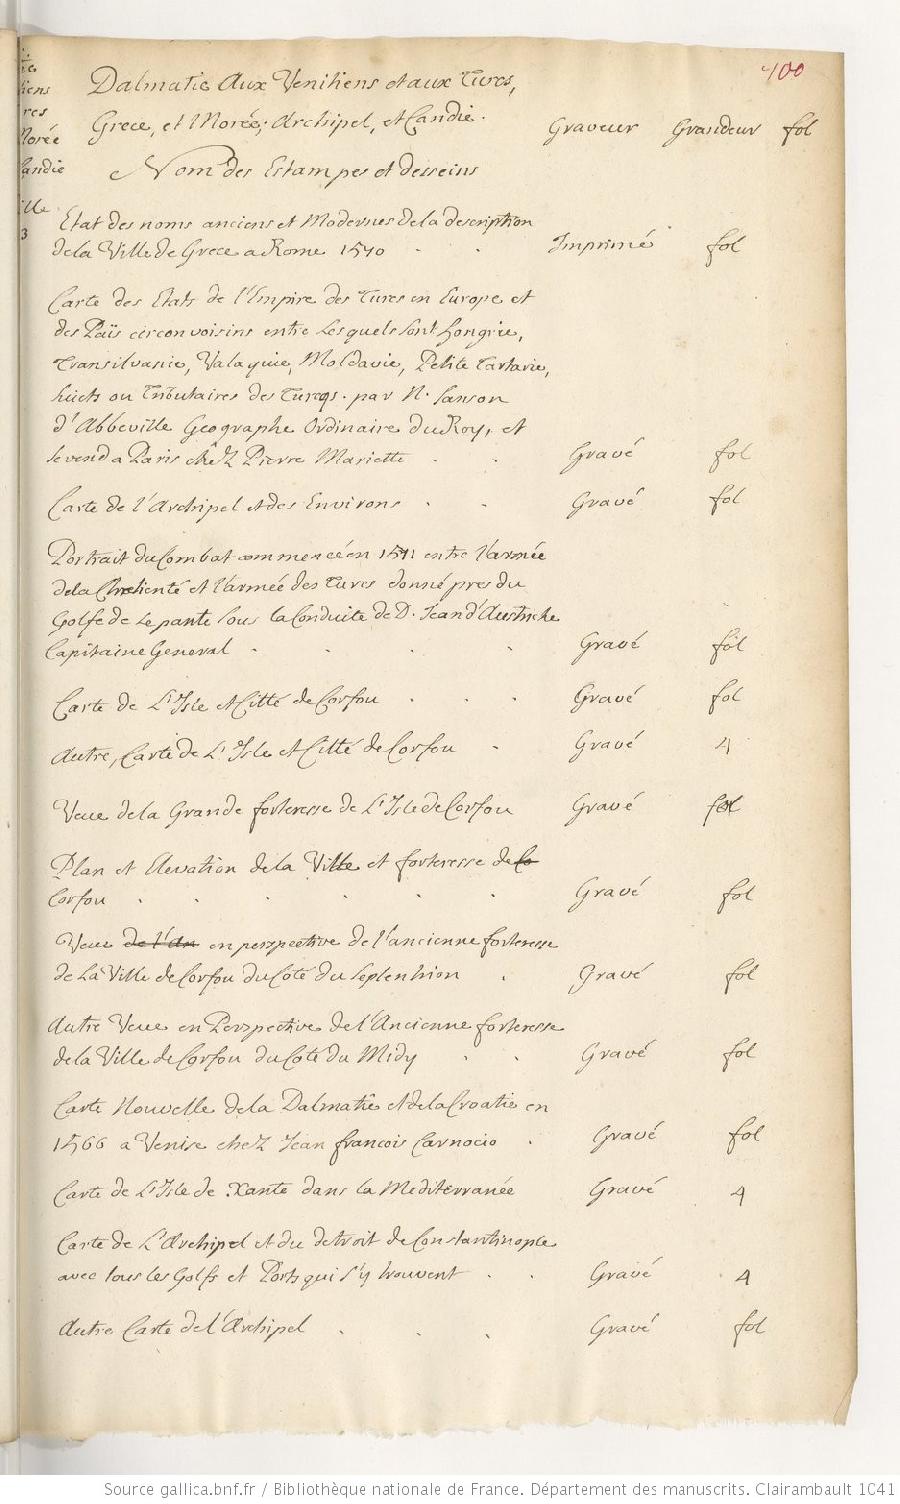 400
Dalmatie aux Venitiens et aux Turcs,
Grece, et Morée, Archipel, et Candie.
Graveur Grandeur fol
Nom des Estampes et desseins
Morée
andie
ille
3
Etat des noms anciens et Modernes de la description
de la Ville de Grece a Rome 1570 . . Imprimé fol
Carte des Etats de l'Empire des Turcs en Europe et
des Païs circonvoisins entre Lesquels sont hongrie,
Transilvanie, Valaquie, Moldavie, Petite Tartarie,
Sujets ou Tributaires des Turcqs. par N. Sanson
d'Abbeville Geographe Ordinaire du Roy, et
se vend a Paris chez Pierre Mariette . . Gravé fol
Carte de l'Archipel et des Environs . . Gravé fol
Portrait du Combat commencé en 1571 entre l'armée
de la Chretienté et l'armée des Turcs donné pres du
Golfe de Lepante sous la Conduite de D. Jean d'Austriche
Capitaine General . . . . Gravé fol
Carte de L'Isle et Citté de Corfou . . . Gravé fol
Autre, Carte de L'Isle et Citté de Corfou . Gravé 4
Veue de la Grande forteresse de L'Isle de Corfou Gravé fol
Plan et Elevation de la Ville et forteresse de Co
Corfou . . . . . . Gravé fol
Veue de l'An en perspective de l'ancienne forteresse
de La Ville de Corfou du Coté du Septentrion . Gravé fol
Autre Veue en Perspective de l'Ancienne forteresse
de la Ville de Corfou du Coté du Midy . . Gravé fol
Carte Nouvelle de la Dalmatie et de la Croatie en
1566 a Venise chez Jean francois Camocio . Gravé fol
Carte de L'Isle de Xante dans la Mediterranée Gravé 4
Carte de L'Archipel et du detroit de Constantinople
avec tous les Golfs et Ports qui s'y trouvent . . Gravé 4
Autre Carte de l'Archipel . . . Gravé fol
Source gallica.bnf.fr / Bibliothèque nationale de France. Département des manuscrits. Clairambault 1041